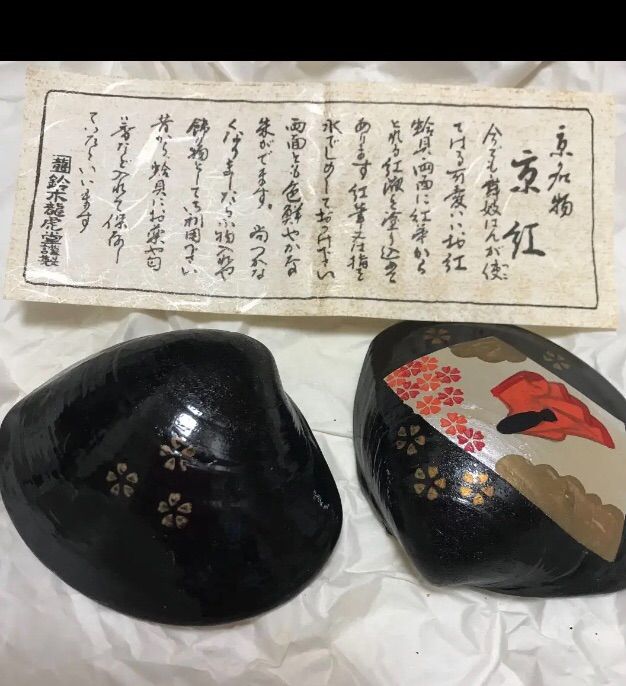 京名物
京紅
今でも舞妓はんが使っ
てはる可愛いいお紅
蛤貝の両面に紅花から
とれる紅液を塗り込めて
あります 紅筆又は指を
水でしめしておつけ下さい
両面とも色鮮やかな
朱がでます。尚つかえな
くなりましたら小物入れや
飾り物としても利用下さい
昔から蛤貝にお薬やお
香など入れて保存し
ていたといいます
鈴木龍虎堂謹製